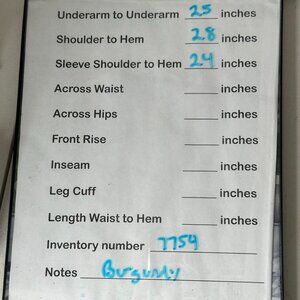 Underarm to Underarm 25 inches
Shoulder to Hem 28 inches
Sleeve Shoulder to Hem 24 inches
Across Waist ____ inches
Across Hips ____ inches
Front Rise ____ inches
Inseam ____ inches
Leg Cuff ____ inches
Length Waist to Hem ____ inches
Inventory number 7754
Notes Burgundy